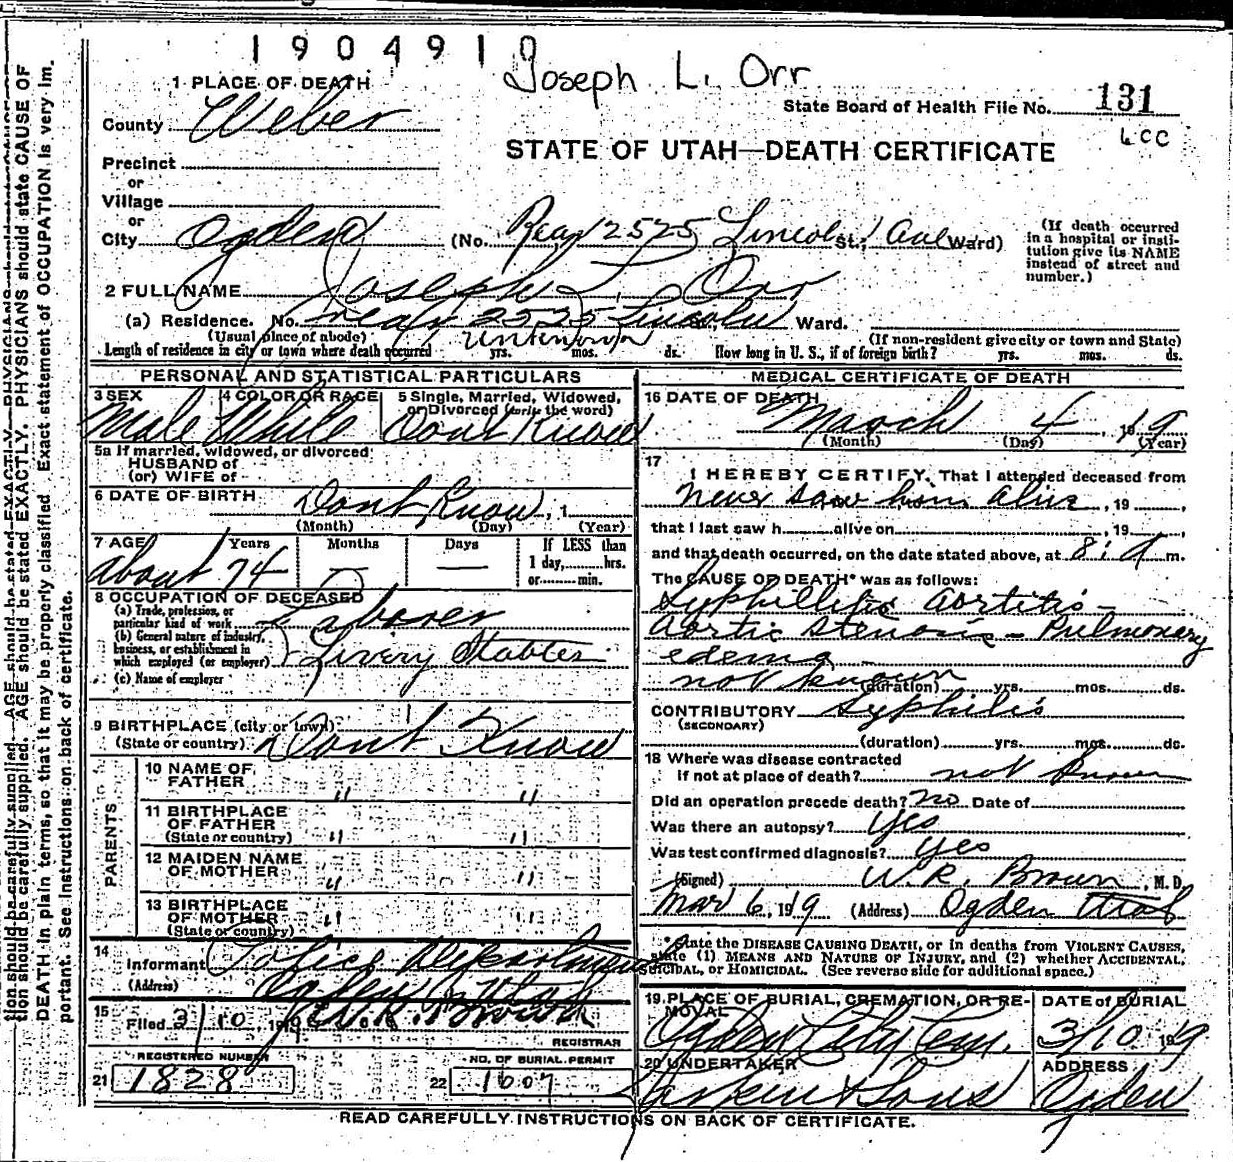 1904910
Joseph L. Orr
1 PLACE OF DEATH
State Board of Health File No. 131
County Weber
LCC
STATE OF UTAH—DEATH CERTIFICATE
Precinct
or
Village
or
City Ogden (No. Rear 2525 Lincoln St.; Ave Ward)
(If death occurred in a hospital or institution give its NAME instead of street and number.)
2 FULL NAME Joseph L. Orr
(a) Residence. No. rear 2525 Lincoln St., Ward.
(Usual place of abode) (If non-resident give city or town and State)
Length of residence in city or town where death occurred unknown yrs. mos. ds. How long in U. S., if of foreign birth? yrs. mos. ds.
PERSONAL AND STATISTICAL PARTICULARS
3 SEX Male
4 COLOR OR RACE White
5 Single, Married, Widowed, or Divorced (write the word) Dont Know
5a If married, widowed, or divorced:
HUSBAND of
(or) WIFE of
6 DATE OF BIRTH Dont Know, 1
(Month) (Day) (Year)
7 AGE Years Months Days If LESS than
about 74 — — 1 day, hrs.
or min.
8 OCCUPATION OF DECEASED
(a) Trade, profession, or particular kind of work Laborer
(b) General nature of industry, business, or establishment in which employed (or employer) Livery Stables
(c) Name of employer
9 BIRTHPLACE (city or town)
(State or country) Dont Know
PARENTS
10 NAME OF FATHER " "
11 BIRTHPLACE OF FATHER (State or country) " "
12 MAIDEN NAME OF MOTHER " "
13 BIRTHPLACE OF MOTHER (State or country) " "
14 Informant Police Department
(Address) Ogden Utah
15 Filed 3/10, 19 W.R. Brown
REGISTRAR
REGISTERED NUMBER
21 1828
NO. OF BURIAL PERMIT
22 1607
MEDICAL CERTIFICATE OF DEATH
16 DATE OF DEATH March 4, 19 9
(Month) (Day) (Year)
17 I HEREBY CERTIFY, That I attended deceased from
never saw him alive, 19 ,
that I last saw h alive on , 19 ,
and that death occurred, on the date stated above, at 8: A m.
The CAUSE OF DEATH* was as follows:
Syphillitic Aortitis -
Aortic Stenosis - Pulmonary
edema
not known (duration) yrs. mos. ds.
CONTRIBUTORY Syphilis
(SECONDARY)
(duration) yrs. mos. ds.
18 Where was disease contracted
if not at place of death? not known
Did an operation precede death? no Date of
Was there an autopsy? yes
Was test confirmed diagnosis? yes
(Signed) W. R. Brown, M. D.
Mar 6, 1919 (Address) Ogden Utah
*State the DISEASE CAUSING DEATH, or in deaths from VIOLENT CAUSES,
state (1) MEANS AND NATURE OF INJURY, and (2) whether ACCIDENTAL,
SUICIDAL, OR HOMICIDAL. (See reverse side for additional space.)
19 PLACE OF BURIAL, CREMATION, OR REMOVAL Ogden City Cem.
DATE of BURIAL 3/10 19 9
20 UNDERTAKER Larkin & Sons
ADDRESS Ogden
READ CAREFULLY INSTRUCTIONS ON BACK OF CERTIFICATE.
tion should be carefully supplied. AGE should be stated EXACTLY. PHYSICIANS should state CAUSE OF
DEATH in plain terms, so that it may be properly classified. Exact statement of OCCUPATION is very im-
portant. See instructions on back of certificate.